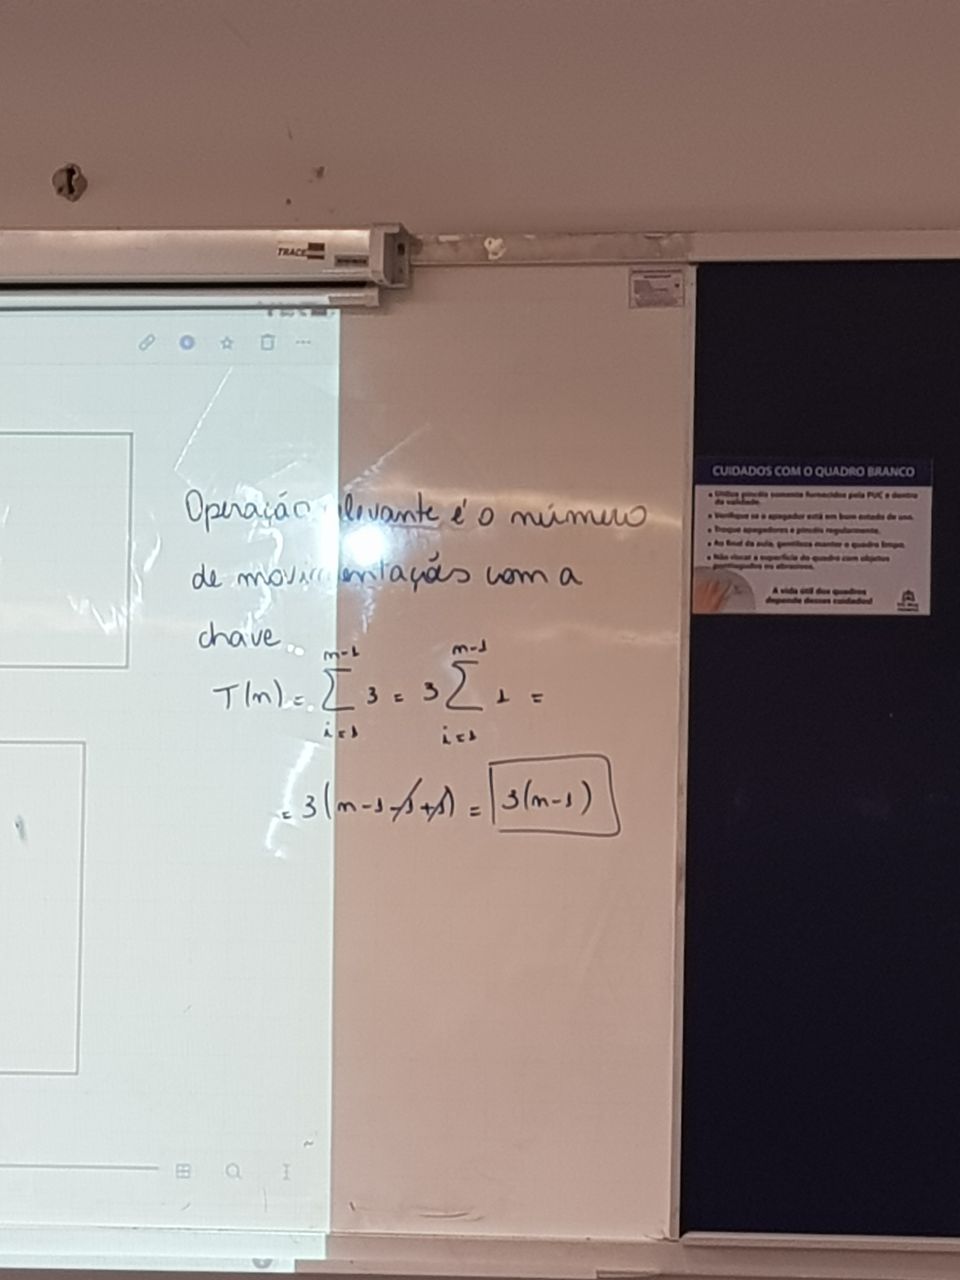 TRACE
Operação relevante é o número
de movimentações com a
chave.
T(n) = ∑_{i=1}^{n-1} 3 = 3 ∑_{i=1}^{n-1} 1 =
= 3(n-1-1+1) = 3(n-1)
CUIDADOS COM O QUADRO BRANCO
• Utilize pincéis somente fornecidos pela PUC e dentro
da validade.
• Verifique se o apagador está em bom estado de uso.
• Troque apagadores e pincéis regularmente.
• Ao final da aula, gentileza manter o quadro limpo.
• Não riscar a superfície do quadro com objetos
pontiagudos ou abrasivos.
A vida útil dos quadros
depende desses cuidados!